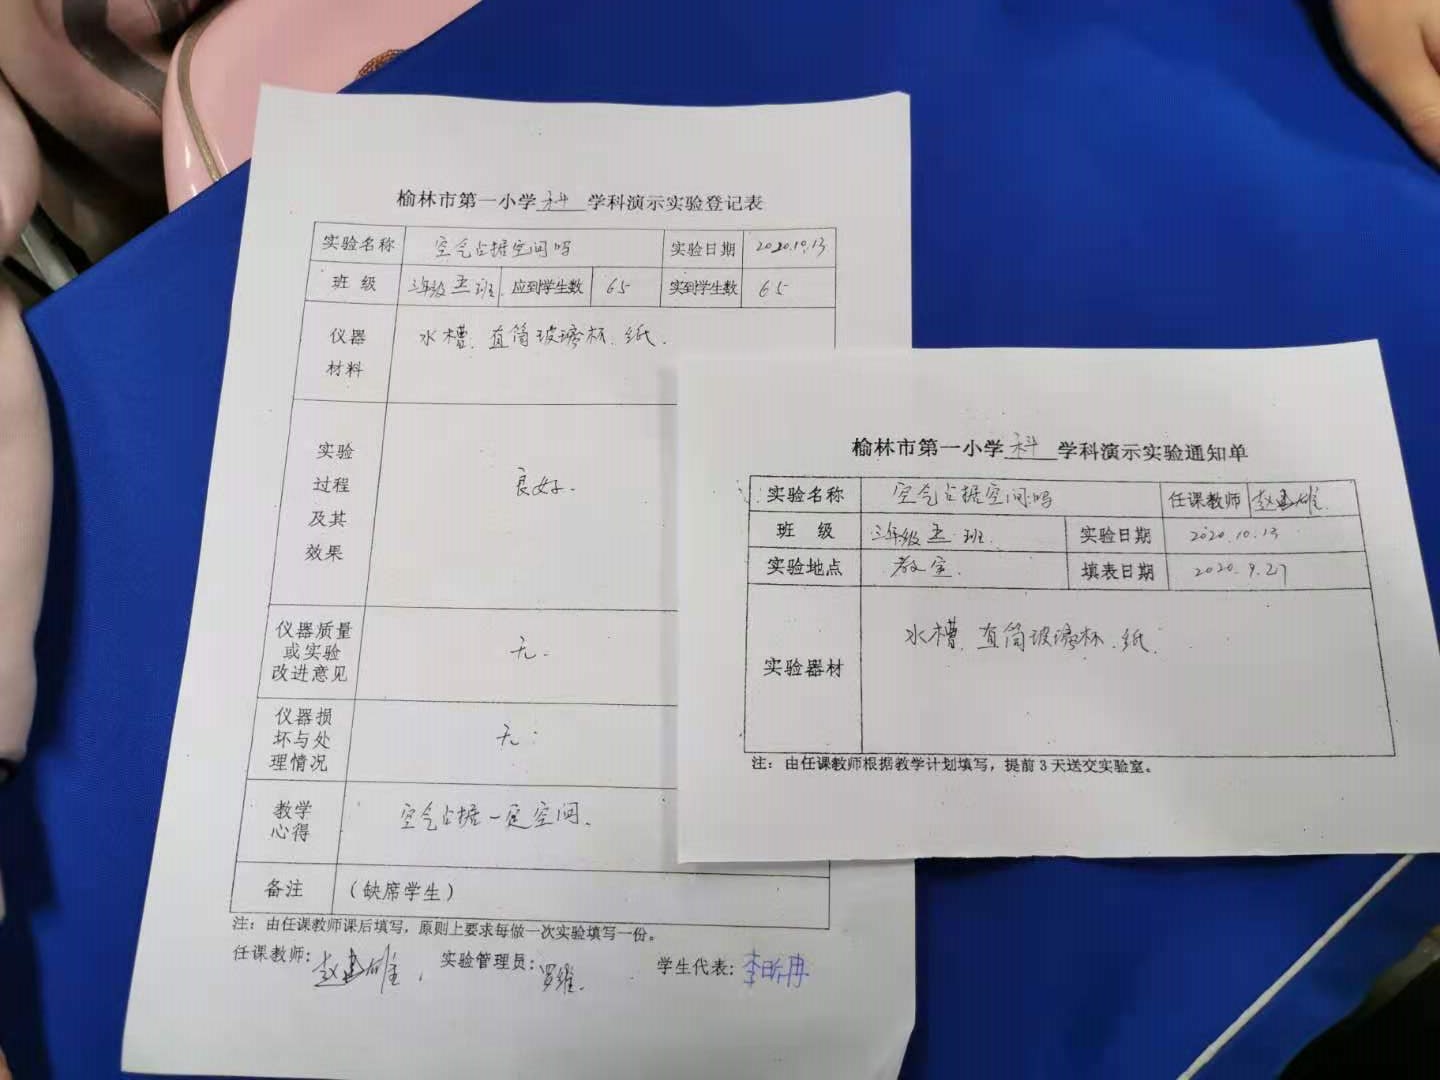 榆林市第一小学 科 学科演示实验登记表
实验名称 空气占据空间吗 实验日期 2020.10.13
班 级 三年级 五 班. 应到学生数 65 实到学生数 65
仪器
材料
水槽、直筒玻璃杯、纸.
实验
过程
及其
效果
良好.
仪器质量
或实验
改进意见
无.
仪器损
坏与处
理情况
无.
教学
心得
空气占据一定空间.
备注 (缺席学生)
注: 由任课教师课后填写, 原则上要求每做一次实验填写一份。
任课教师: 赵建雄. 实验管理员: 罗维. 学生代表: 李昕冉
榆林市第一小学 科 学科演示实验通知单
实验名称 空气占据空间吗 任课教师 赵建雄.
班 级 三年级 五 班. 实验日期 2020.10.13
实验地点 教室. 填表日期 2020.9.27
实验器材 水槽、直筒玻璃杯、纸.
注: 由任课教师根据教学计划填写, 提前3天送交实验室。